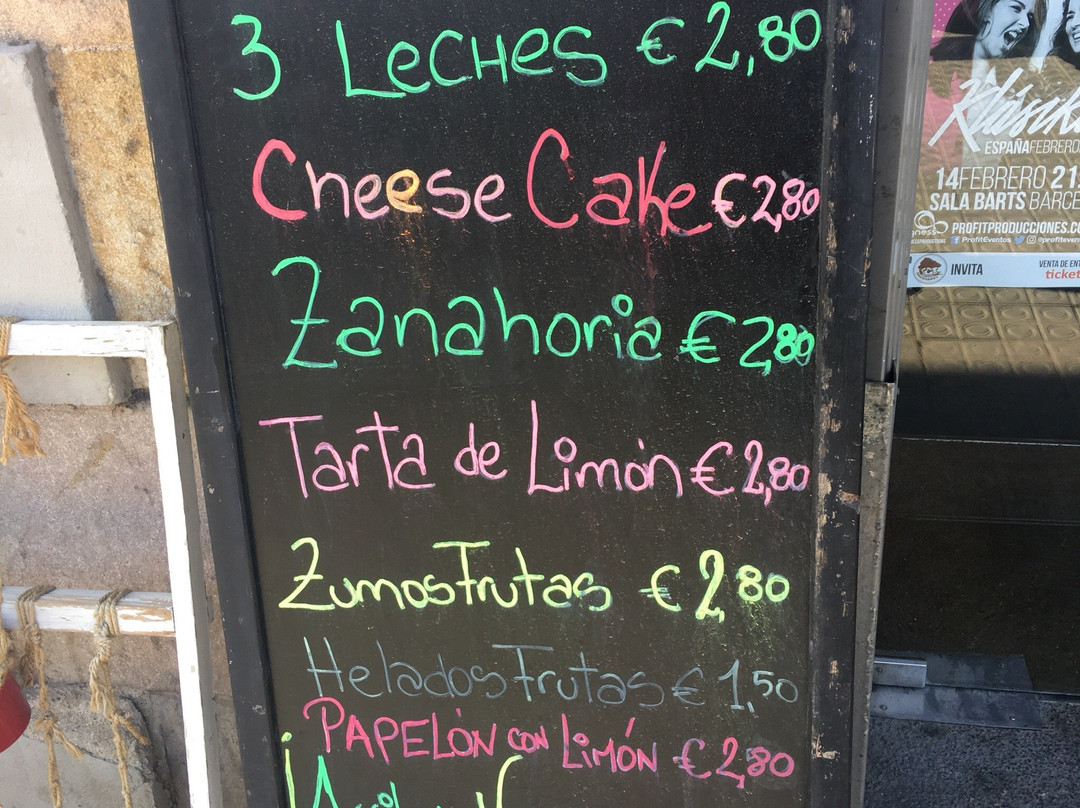 3 Leches €2,80
Cheese Cake €2,80
Zanahoria €2,80
Tarta de Limón €2,80
Zumos Frutas €2,80
Helados Frutas €1,50
PAPELÓN CON LIMÓN €2,80
ESPAÑAFEBRERO
14FEBRERO 21
SALA BARTS BARCE
PROFITPRODUCCIONES.CO
ProfitEventos @profiteven
INVITA
VENTA DE EN
ticket